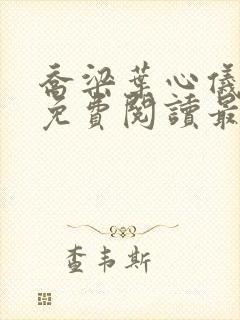 喬梁葉心儀
免費閱讀最
查韦斯